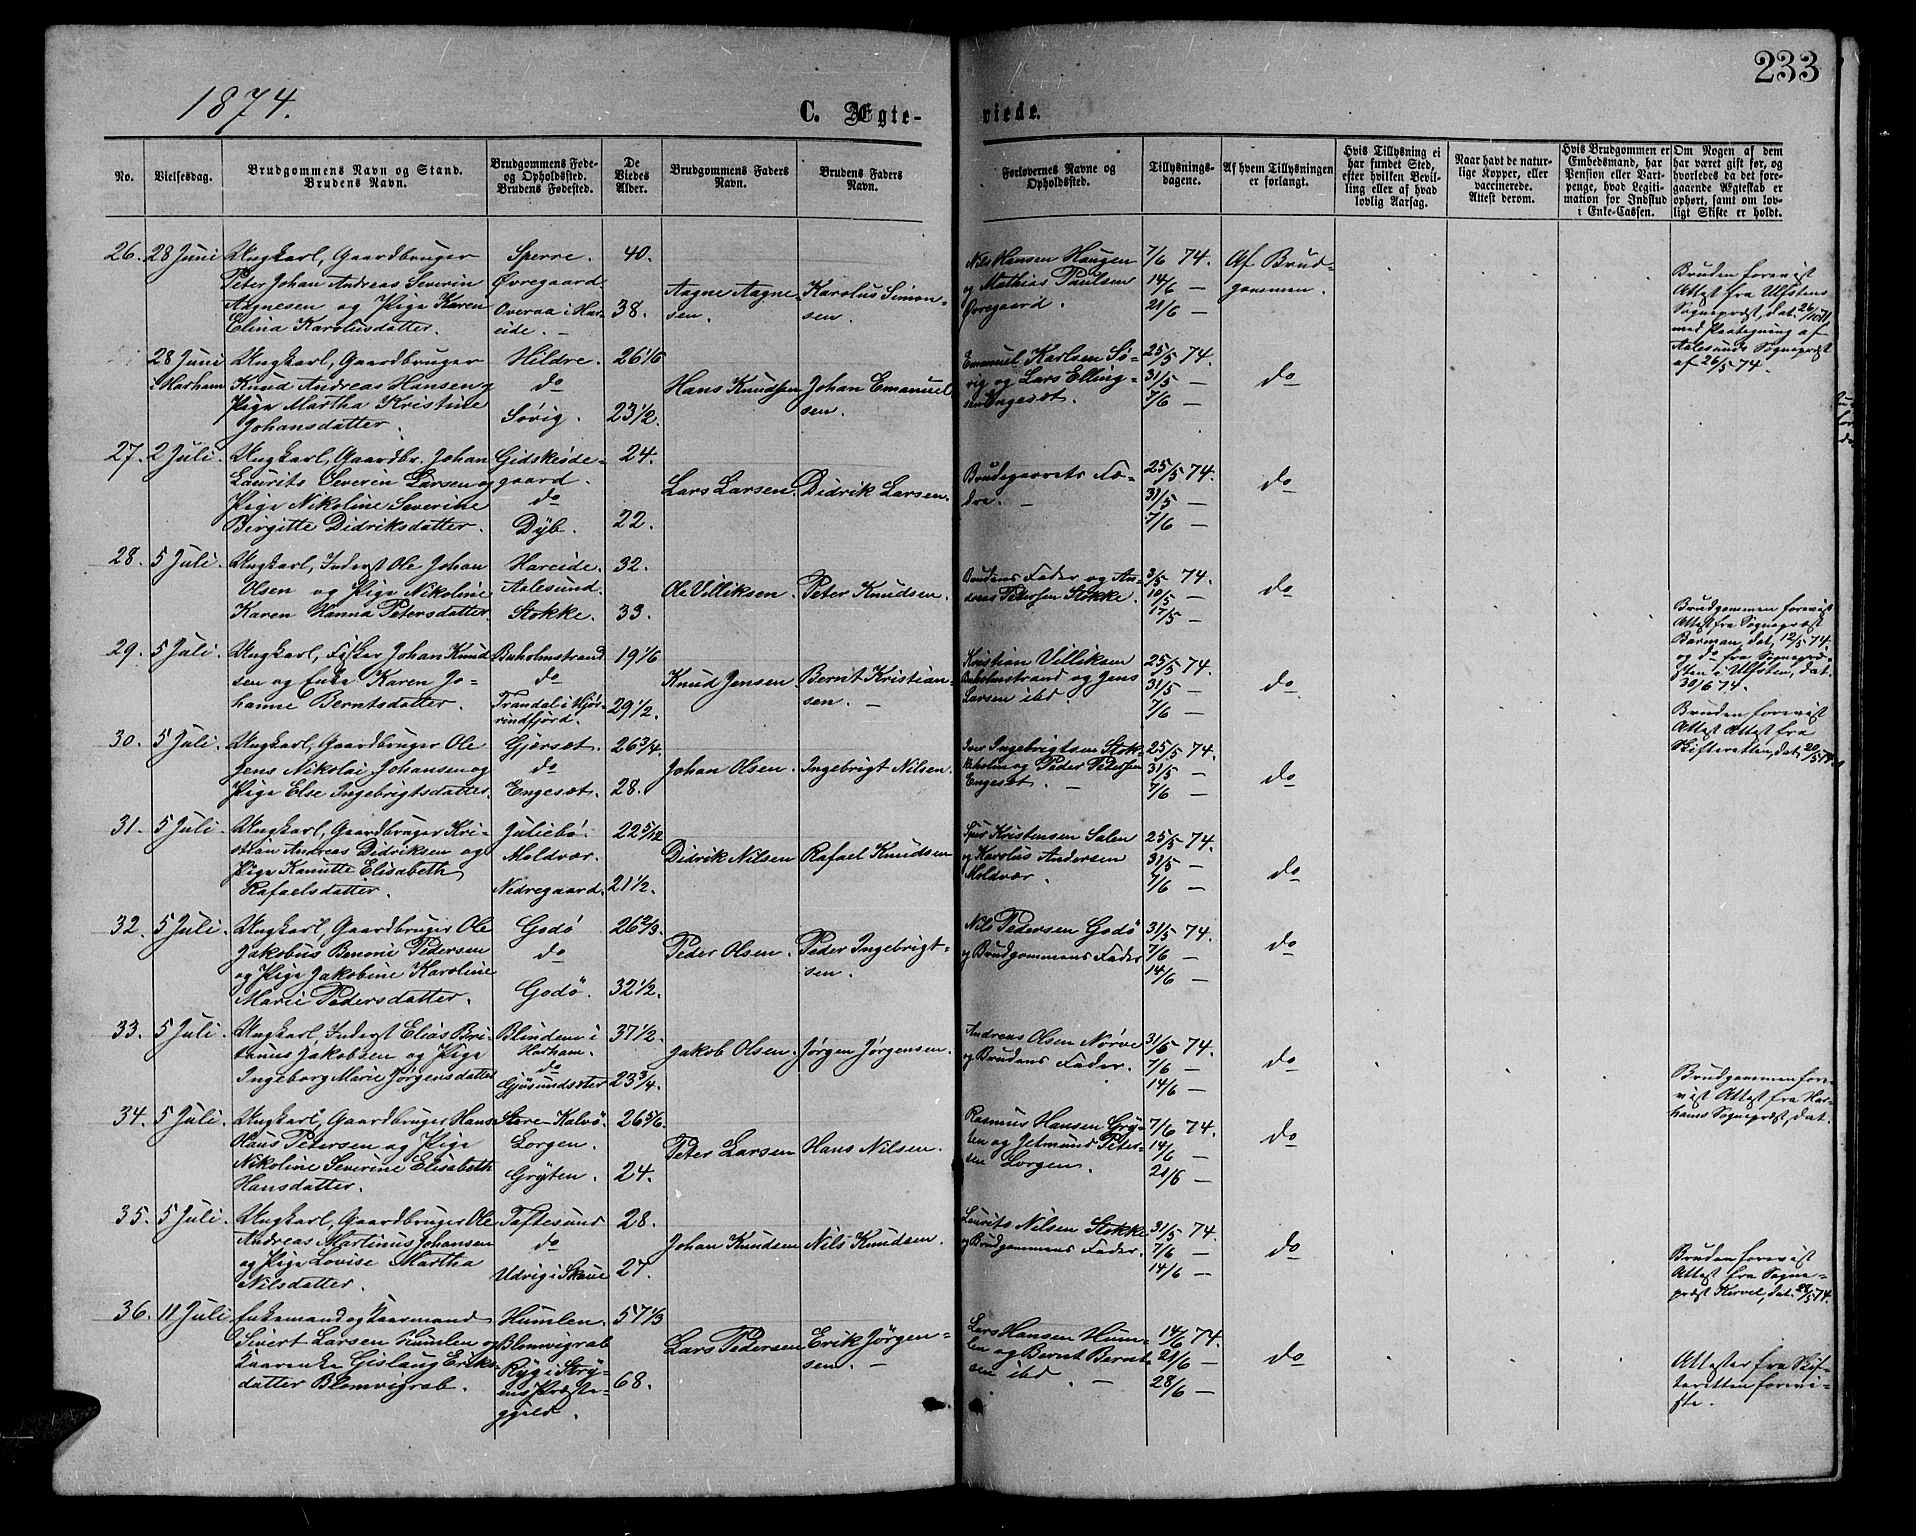 233
1874.
C. Ægte-
viede.
No.
Vielsesdag.
Brudgommens Navn og Stand.
Brudens Navn.
Brudgommens Føde-
og Opholdssted.
Brudens Fødested.
De
Viedes
Alder.
Brudgommens Faders
Navn.
Brudens Faders
Navn.
Forlovernes Navne og
Opholdssted.
Tillysnings-
dagene.
Af hvem Tillysningen
er forlangt.
Hvis Tillysning ei
har fundet Sted,
efter hvilken Bevil-
ling eller af hvad
lovlig Aarsag.
Naar havt de natur-
lige Kopper, eller
vaccinerede.
Attest derom.
Hvis Brudgommen er
Embedsmand, har
Pension eller Vart-
penge, hvad Legiti-
mation for Indskud
i Enke-Cassen.
Om Nogen af dem
har været gift før, og
hvorledes da det fore-
gaaende Ægteskab er
ophørt, samt om lov-
ligt Skifte er holdt.
26.
28 Juni
Ungkarl, Gaardbruger
Peter Johan Andreas Severin
Aagnesen og Pige Karen
Elina Karolusdatter.
Sperre.
Øvregaard
Overaa i Har-
eide. -
40.
38.
Aagne Aagne-
sen.
Karolus Simon-
sen.
Nils Hansen Haugen
og Mathias Paulsen
Øvregaard.
7/6 74.
14/6 -
21/6 -
Af Brud-
gommen.
Bruden forevist
Attest fra Ulfstens
Sognepræst, dat. 26/10 71
med Paategning af
Aalesunds Sognepræst
af 26/5 74.
28 Juni
i Harham
Ungkarl, Gaardbruger
Knud Andreas Hansen og
Pige Martha Kristine
Johansdatter.
Hildre.
do
Søvig.
26 1/6
23 1/2.
Hans Knudsen
Johan Emanuel
sen.
Emanuel Karlsen Sø-
vig og Lars Elling-
sen Engesæt.
25/5 74.
31/5 -
7/6 -
do
27.
2 Juli.
Ungkarl, Gaardbr. Johan
Laurits Severin Larsen og
Pige Nikoline Severine
Birgitte Didriksdatter.
Gidskeøde-
gaard.
do
Dyb.
24.
22.
Lars Larsen.
Didrik Larsen.
Brudeparrets Fæ-
dre. -
25/5 74.
31/5 -
7/6 -
do
28.
5 Juli.
Ungkarl, Inderst Ole Johan
Olsen og Pige Nikoline
Karen Hanna Petersdatter.
Hareide.
Aalesund.
Stokke.
32.
33.
Ole Villiksen.
Peter Knudsen.
Brudens Fader og An-
dreas Petersen Stokke.
3/5 74.
10/5 -
17/5 -
do
Brudgommen forevist
Attest fra Sognepræst
Barman, dat. 12/5 74.
og do fra Sognepræ-
sten i Ulfsten, dat.
30/6 74.
29.
5 Juli.
Ungkarl, Fisker Johan Knud
sen og Enke Karen Jo-
hanne Berntsdatter.
Buholmstrand
do
Trandal i Hjør-
rindfjord.
19 1/6
29 1/2.
Knud Jensen.
Bernt Kristian-
sen. -
Kristian Villiksen
Buholmstrand og Jens
Larsen ibd.
25/5 74.
31/5 -
7/6 -
do
Bruden forevist
Attest Attest fra
Skifteretten, dat. 20/5 74.
30.
5 Juli.
Ungkarl, Gaardbruger Ole
Jens Nikolai Johansen og
Pige Else Ingebrigtsdatter.
Gjørsæt.
do
Engesæt.
26 3/4.
28.
Johan Olsen.
Ingebrigt Nilsen.
Iver Ingebrigtsen Stok-
keholm og Peder Petersen
Engesæt. -
25/5 74.
31/5 -
7/6 -
do
31.
5 Juli.
Ungkarl, Gaardbruger Kri-
stian Andreas Didriksen og
Pige Kanutte Elisabeth
Rafaelsdatter.
Juliebø.
Moldvær.
Nedregaard.
22 5/12
21 1/2.
Didrik Nilsen
Rafael Knudsen
Kristensen Salen
og Karolus Andersen
Moldvær.
25/5 74.
31/5 -
7/6 -
do
32.
5 Juli.
Ungkarl, Gaardbruger Ole
Jakobus Benoni Pedersen
og Pige Jakobine Karoline
Marie Pedersdatter.
Godø
do
Godø.
26 2/3.
32 1/2.
Peder Olsen.
Peder Ingebrigt-
sen.
Nils Pedersen Godø
og Brudgommens Fader
31/5 74.
7/6 -
14/6 -
do
33.
5 Juli.
Ungkarl, Inderst Elias Bri-
tanus Jakobsen og Pige
Ingeborg Marie Jørgensdatter
Blindeno i
Harham.
do
Gjøsundsæter
37 1/2.
23 3/4.
Jakob Olsen.
Jørgen Jørgensen.
Andreas Olsen Nørve
og Brudens Fader.
31/5 74.
7/6 -
14/6 -
do
Brudgommen fore-
vist Attest fra Har-
hams Sognepræst, dat.
34.
5 Juli.
Ungkarl, Gaardbruger Hans
Claus Petersen og Pige
Nikoline Severine Elisabeth
Hansdatter.
Store-Kalvø.
Lorgen.
Gryten.
26 5/6.
24.
Peter Larsen
Hans Nilsen.
Rasmus Hansen Gry-
ten og Jetmund Peter-
sen Lorgen.
7/6 74.
14/6 -
21/6 -
do
35.
5 Juli.
Ungkarl, Gaardbruger Ole
Andreas Martinus Johansen
og Pige Lovise Martha
Nilsdatter.
Toftesund
do
Udvig i Skoue
28.
27.
Johan Knudsen
Nils Knudsen.
Laurits Nilsen Stokke
og Brudgommens Fader.
31/5 74.
7/6 -
14/6 -
do
Bruden forevist
Attest fra Sogne-
præst Kervel, dat. 28/5 74.
36.
11 Juli
Enkemand og Kaarmand
Sivert Larsen Humlen og
Kaarenke Gislaug Eriks-
datter Blomvigrab.
Humlen.
Blomvigrab
Ryg i Stry-
ens Præste-
gjeld.
57 1/3
68.
Lars Pedersen
Erik Jørgen-
sen. -
Lars Hansen Hum-
len og Bernt Bernt-
sen ibd. -
14/6 74.
21/6 -
28/6 -
do
Attester fra Skif-
teretten forevi-
ste.